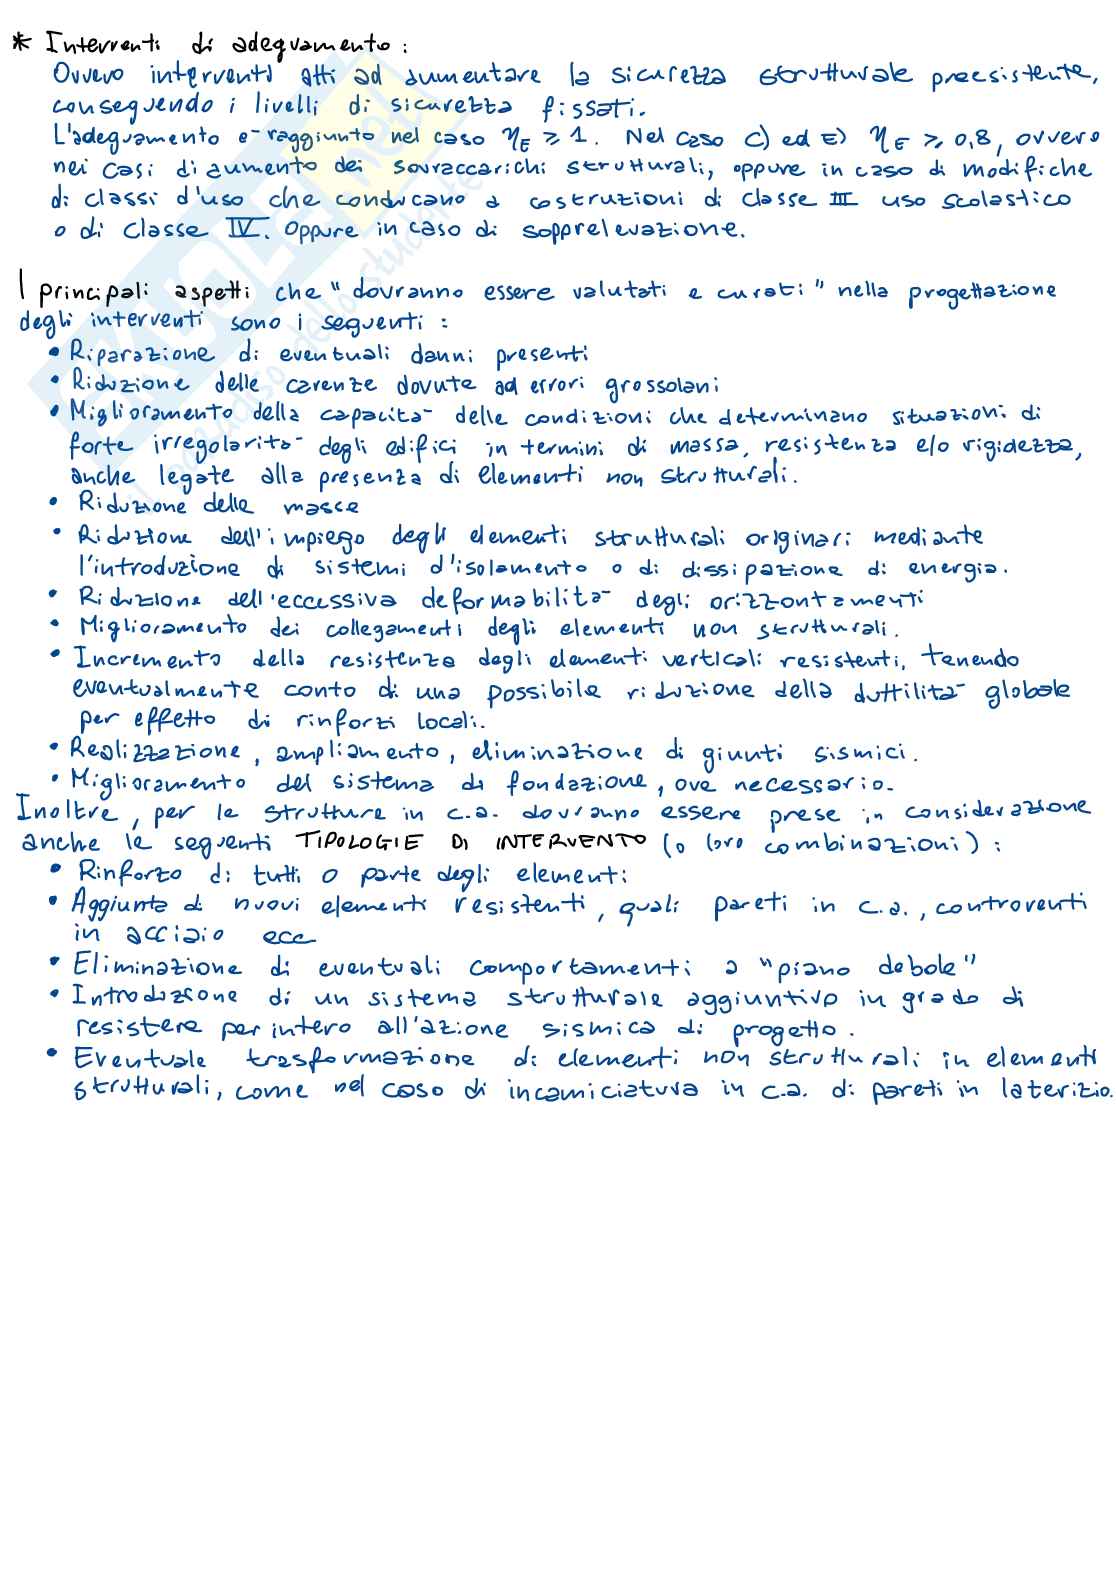 * Interventi di adeguamento:
Ovvero interventi atti ad aumentare la sicurezza strutturale preesistente,
conseguendo i livelli di sicurezza fissati.
L'adeguamento e- raggiunto nel caso ηE ≥ 1. Nel caso C) ed E) ηE ≥ 0,8, ovvero
nei casi di aumento dei sovraccarichi strutturali, oppure in caso di modifiche
di classi d'uso che conducano a costruzioni di classe III uso scolastico
o di classe IV. Oppure in caso di sopprelevazione.
I principali aspetti che "dovranno essere valutati e curati" nella progettazione
degli interventi sono i seguenti:
• Riparazione di eventuali danni presenti
• Riduzione delle carenze dovute ad errori grossolani
• Miglioramento della capacita- delle condizioni che determinano situazioni di
forte irregolarita- degli edifici in termini di massa, resistenza e/o rigidezza,
anche legate alla presenza di elementi non strutturali.
• Riduzione delle masse
• Riduzione dell'impiego degli elementi strutturali originari mediante
l'introduzione di sistemi d'isolamento o di dissipazione di energia.
• Riduzione dell'eccessiva deformabilita- degli orizzontamenti
• Miglioramento dei collegamenti degli elementi non strutturali.
• Incremento della resistenza degli elementi verticali resistenti, tenendo
eventualmente conto di una possibile riduzione della duttilita- globale
per effetto di rinforzi locali.
• Realizzazione, ampliamento, eliminazione di giunti sismici.
• Miglioramento del sistema di fondazione, ove necessario.
Inoltre, per le strutture in c.a. dovranno essere prese in considerazione
anche le seguenti TIPOLOGIE DI INTERVENTO (o loro combinazioni):
• Rinforzo di tutti o parte degli elementi
• Aggiunta di nuovi elementi resistenti, quali pareti in c.a., controventi
in acciaio ecc
• Eliminazione di eventuali comportamenti a "piano debole"
• Introduzione di un sistema strutturale aggiuntivo in grado di
resistere per intero all'azione sismica di progetto.
• Eventuale trasformazione di elementi non strutturali in elementi
strutturali, come nel caso di incamiciatura in c.a. di pareti in laterizio.